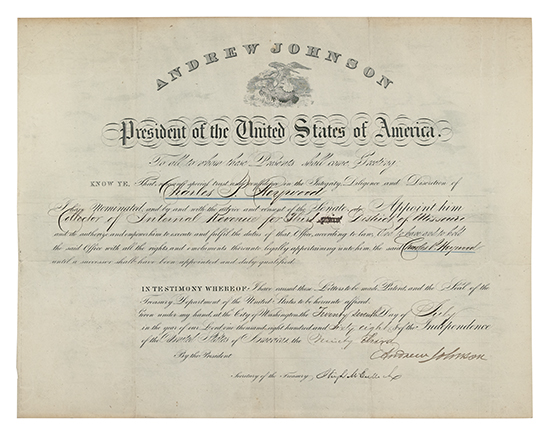 ANDREW JOHNSON
President of the United States of America.
To all to whom these Presents shall come Greeting
KNOW YE. That special trust and confidence in the Integrity Diligence and Discretion of
Charles P. Heywood
I have Nominated, and by and with the advice and consent of the Senate do Appoint him
Collector of Internal Revenue for District of Missouri
and do authorize and empower him to execute and fulfil the duties of that Office according to law; To have and to hold
the said Office with all the rights and emoluments thereunto legally appertaining unto him, the said Charles P. Heywood
until a successor shall have been appointed and duly qualified.
IN TESTIMONY WHEREOF. I have caused these Letters to be made Patent, and the Seal of the
Treasury Department of the United States to be hereunto affixed.
Given under my hand, at the City of Washington the Twenty seventh Day of July
in the year of our Lord one thousand, eight hundred and sixty eight & of the Independence
of the United States of America the Ninety Third
By the President Andrew Johnson
Secretary of the Treasury.